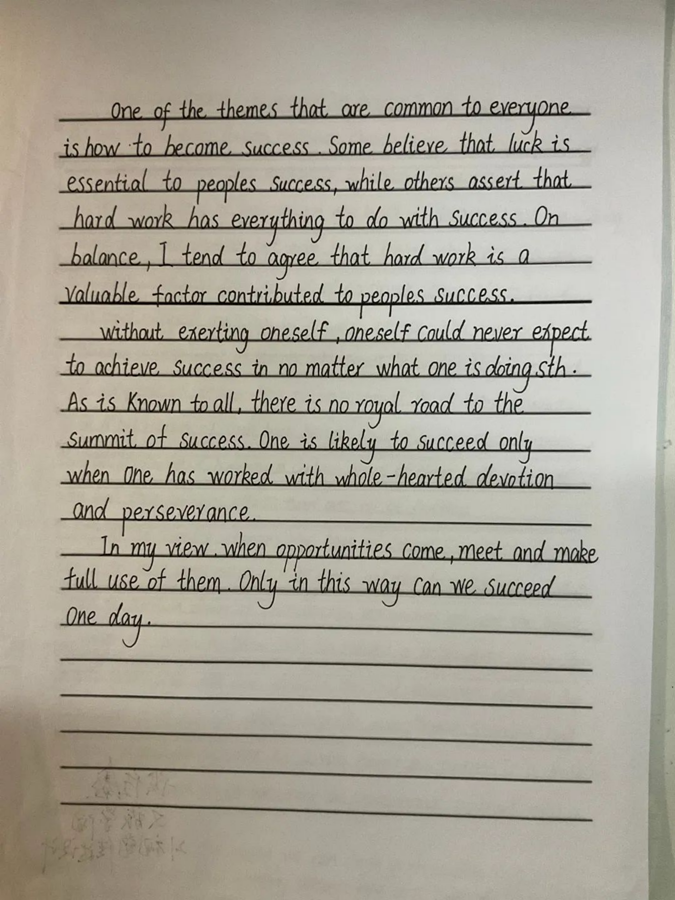 One of the themes that are common to everyone
is how to become success. Some believe that luck is
essential to peoples success, while others assert that
hard work has everything to do with success. On
balance, I tend to agree that hard work is a
valuable factor contributed to peoples success.
without exerting oneself, oneself could never expect
to achieve success in no matter what one is doing sth.
As is known to all, there is no royal road to the
summit of success. One is likely to succeed only
when one has worked with whole-hearted devotion
and perseverance.
In my view. when opportunities come, meet and make
full use of them. Only in this way can we succeed
one day.